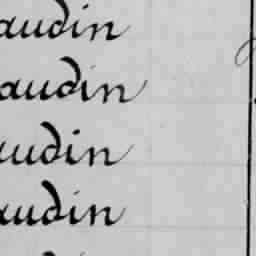 audin
audin
audin
audin